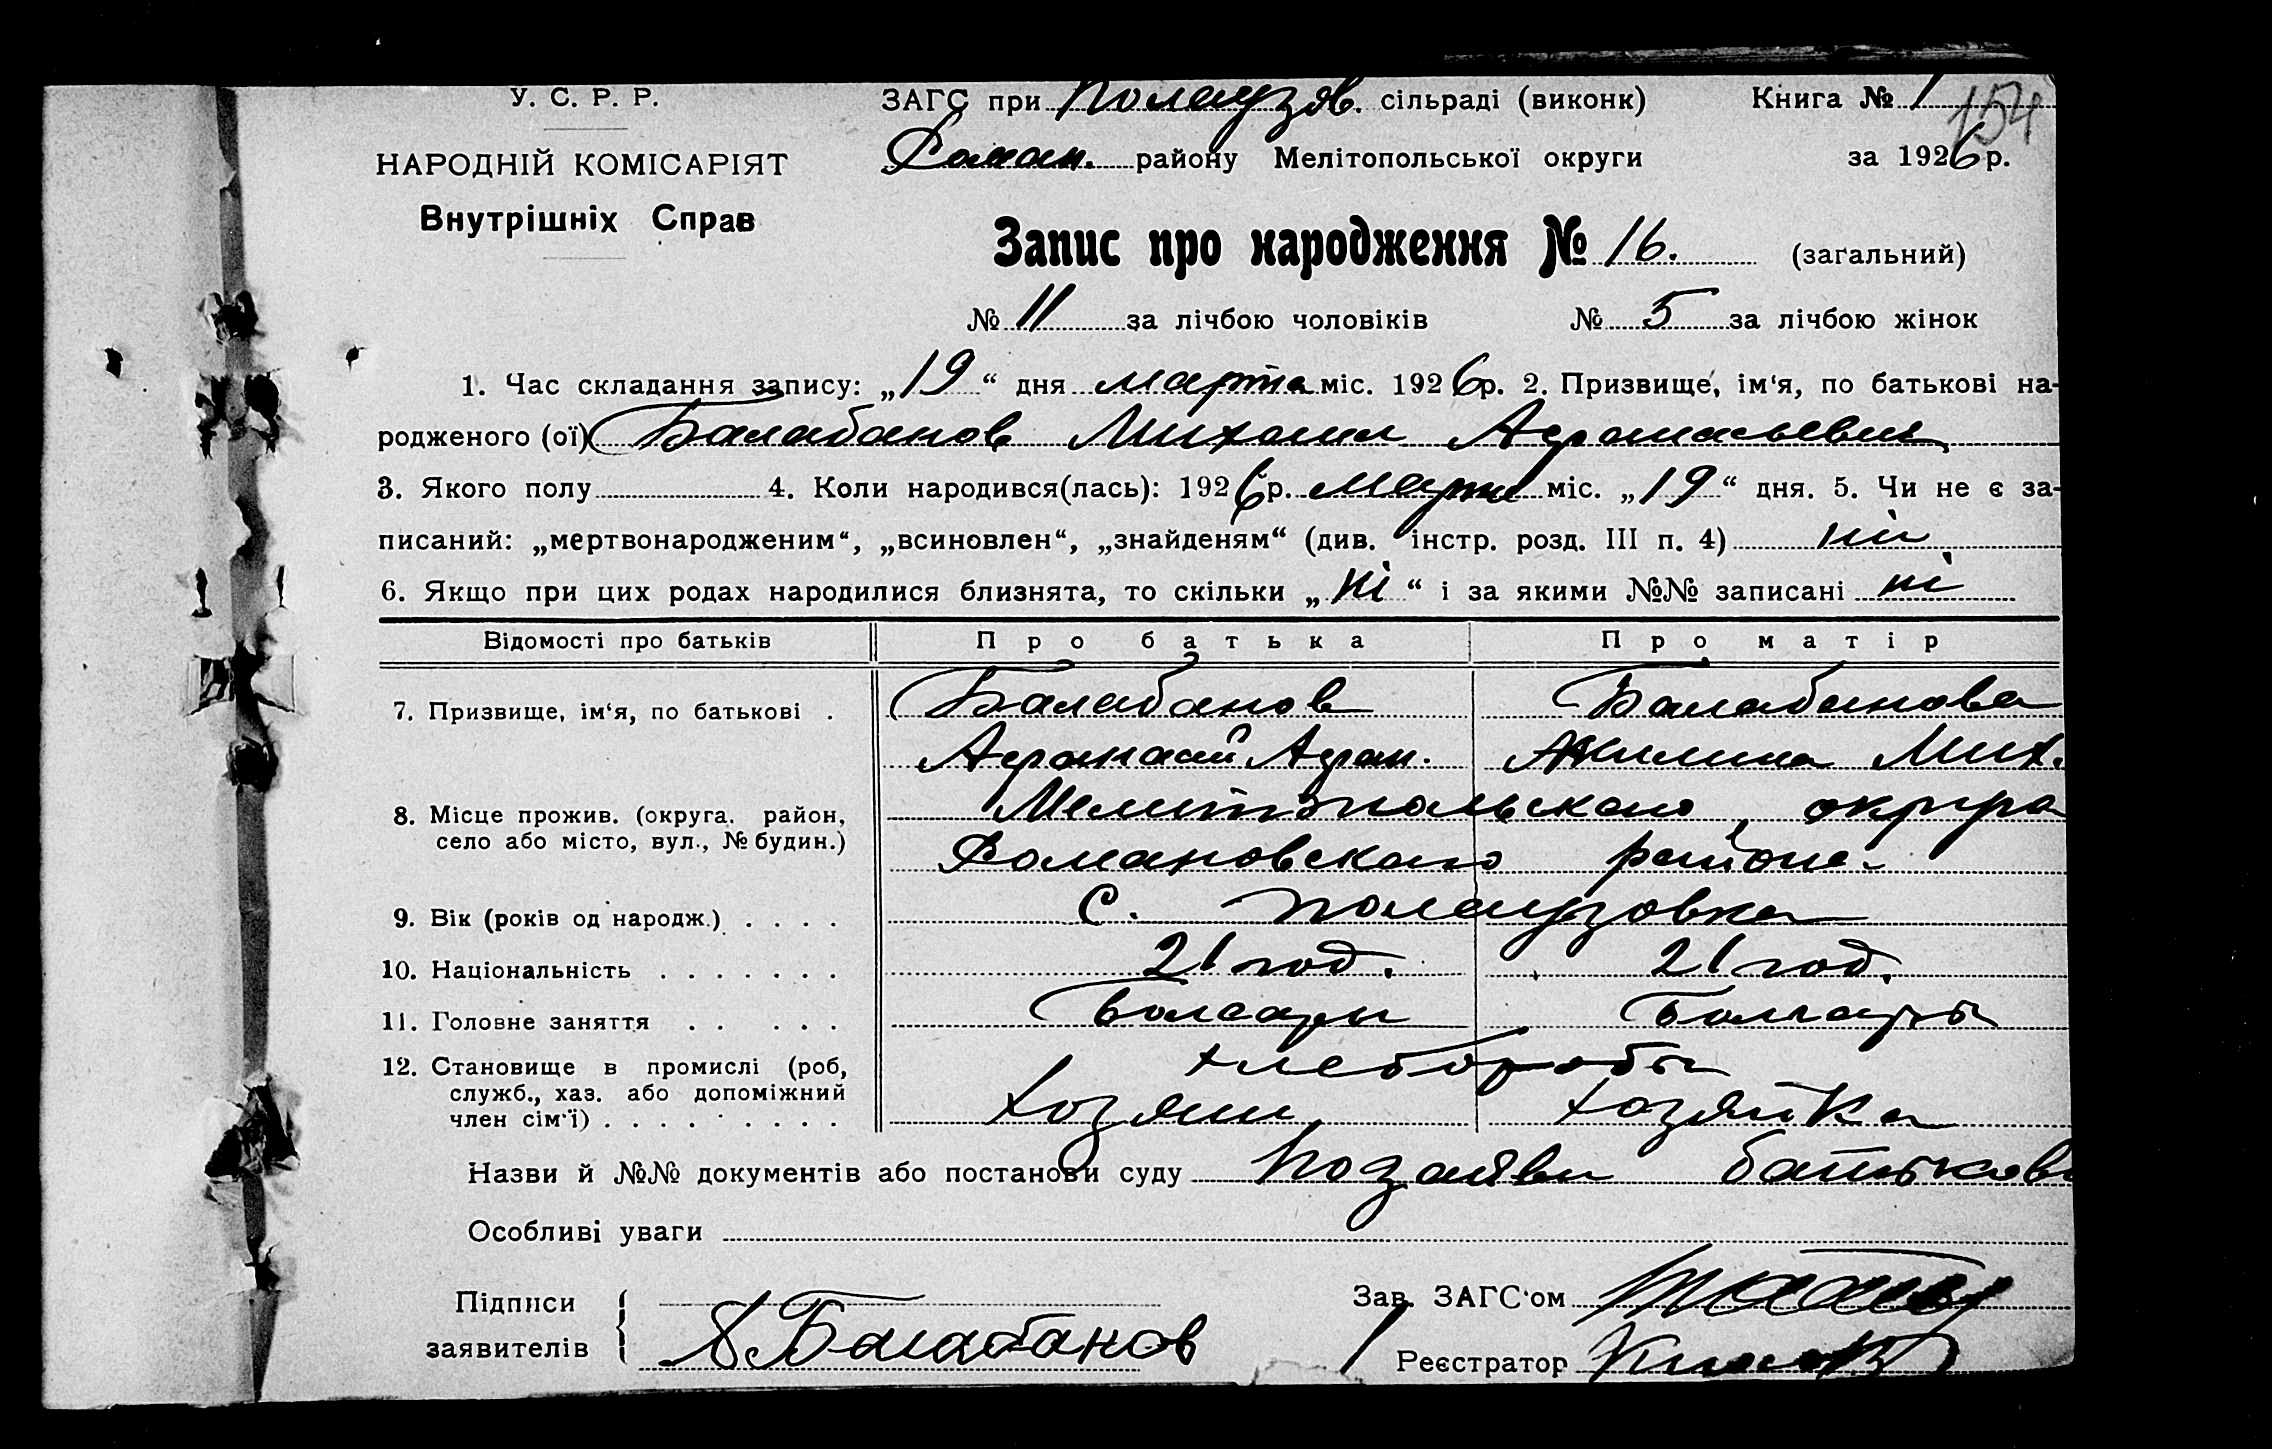 У. С. Р. Р.
НАРОДНІЙ КОМІСАРІЯТ
Внутрішніх Справ
ЗАГС при Полаузов. сільраді (виконк) Книга № 1
154
Роман. району Мелітопольської округи за 1926 р.
Запис про народження № 16. (загальний)
№ 11 за лічбою чоловіків № 5 за лічбою жінок
1. Час складання запису: „19“ дня марта міс. 1926 р. 2. Призвище, ім‘я, по батькові на-
родженого (ої) Балабанов Михаил Афанасьевич
3. Якого полу 4. Коли народився(лась): 1926 р. марта міс. „19“ дня. 5. Чи не є за-
писаний: „мертвонародженим“, „всиновлен“, „знайденям“ (див. інстр. розд. III п. 4) ні
6. Якщо при цих родах народилися близнята, то скільки „ні“ і за якими №№ записані ні
Відомості про батьків Про батька Про матір
7. Призвище, ім‘я, по батькові . Балабанов Балабанова
Афанасий Афан. Мих.
8. Місце прожив. (округа, район, Мелитопольского округа
село або місто, вул., № будин.) Романовского района
9. Вік (років од народж.) . . . . С. Полаузовка
10. Національність . . . . . . . 21 год. 21 год.
11. Головне заняття . . . . . Болгары Болгары
12. Становище в промислі (роб, хлеборобы
служб., хаз. або допоміжний
член сім‘ї) . . . . . . . . . Хозяин Хозяйка
Назви й №№ документів або постанови суду По заяви батькови
Особливі уваги
Підписи
заявителів Балабанов
Зав. ЗАГС‘ом
Реєстратор